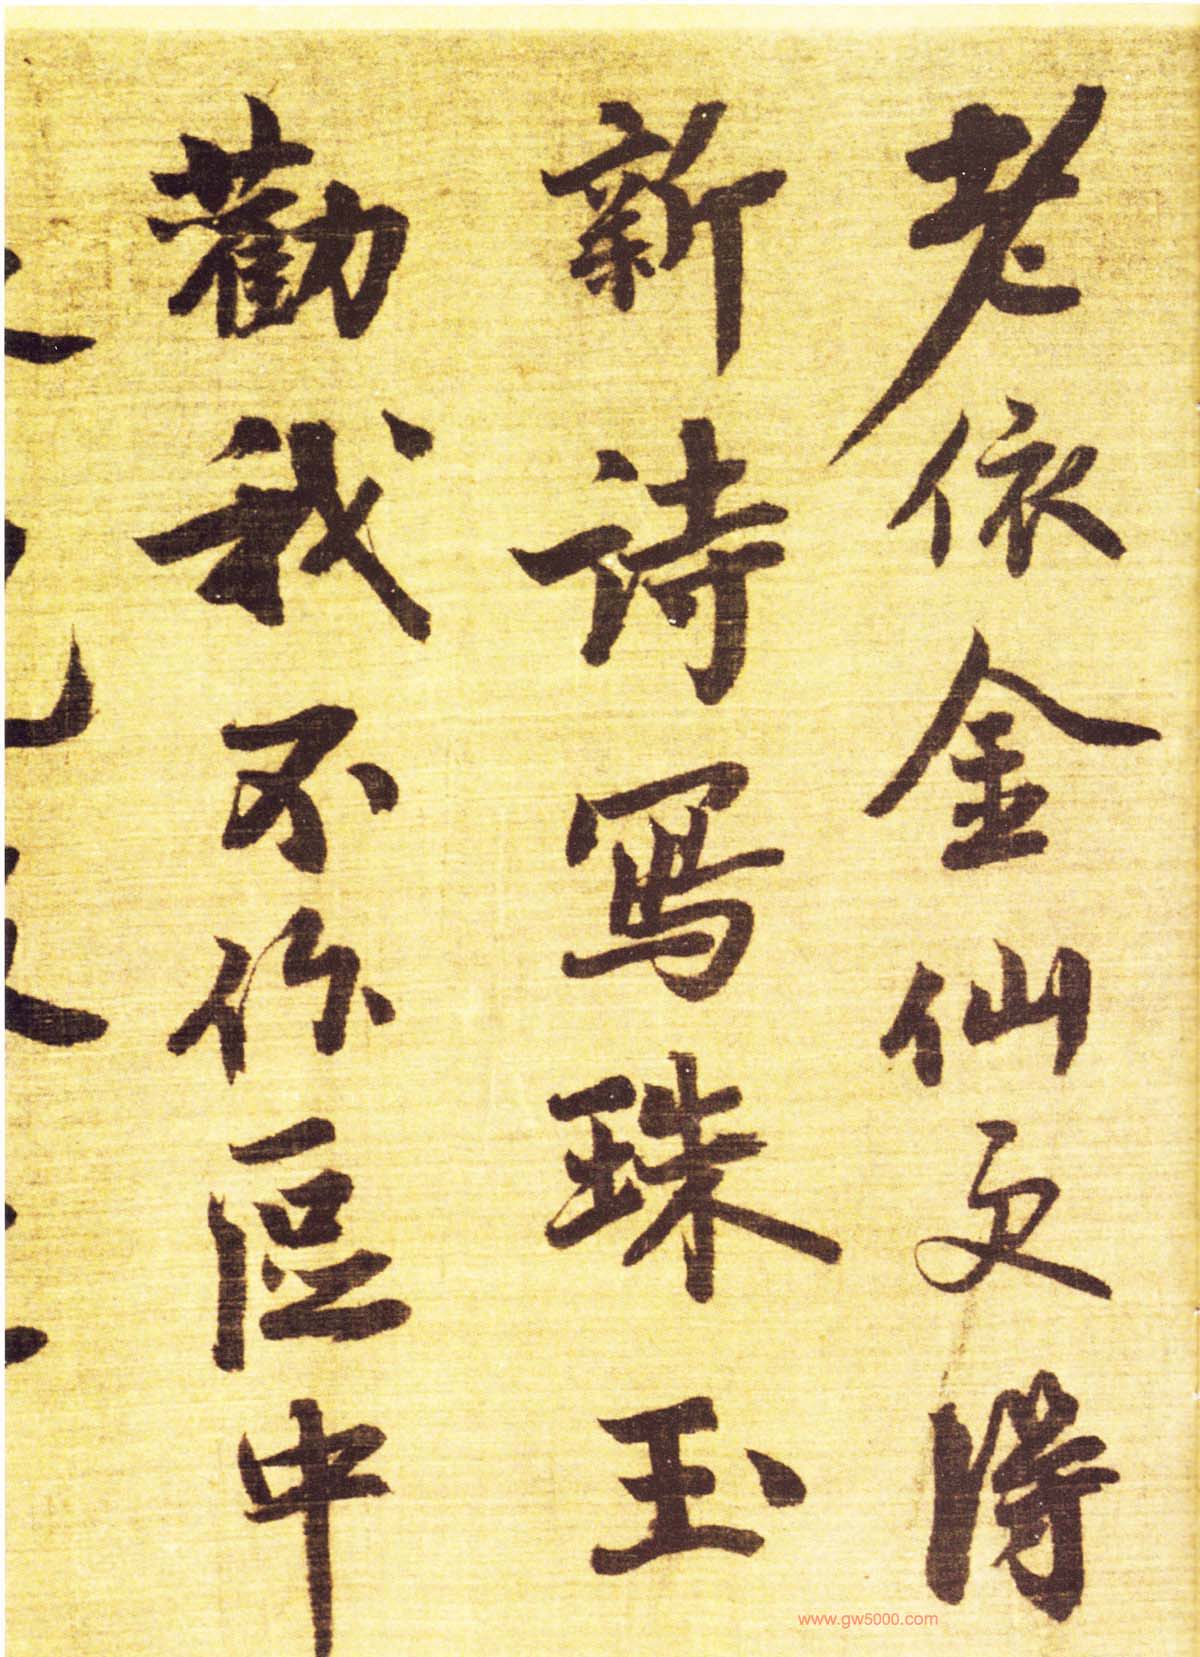 老依金仙文得
新诗写珠玉
勸我不作區中
www.gw5000.com